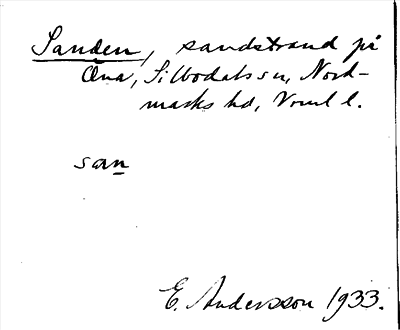 Sanden, sandstrand på
Öna, Sillbodals sn, Nord-
marks hd, Vrml l.
san
E. Andersson 1933.